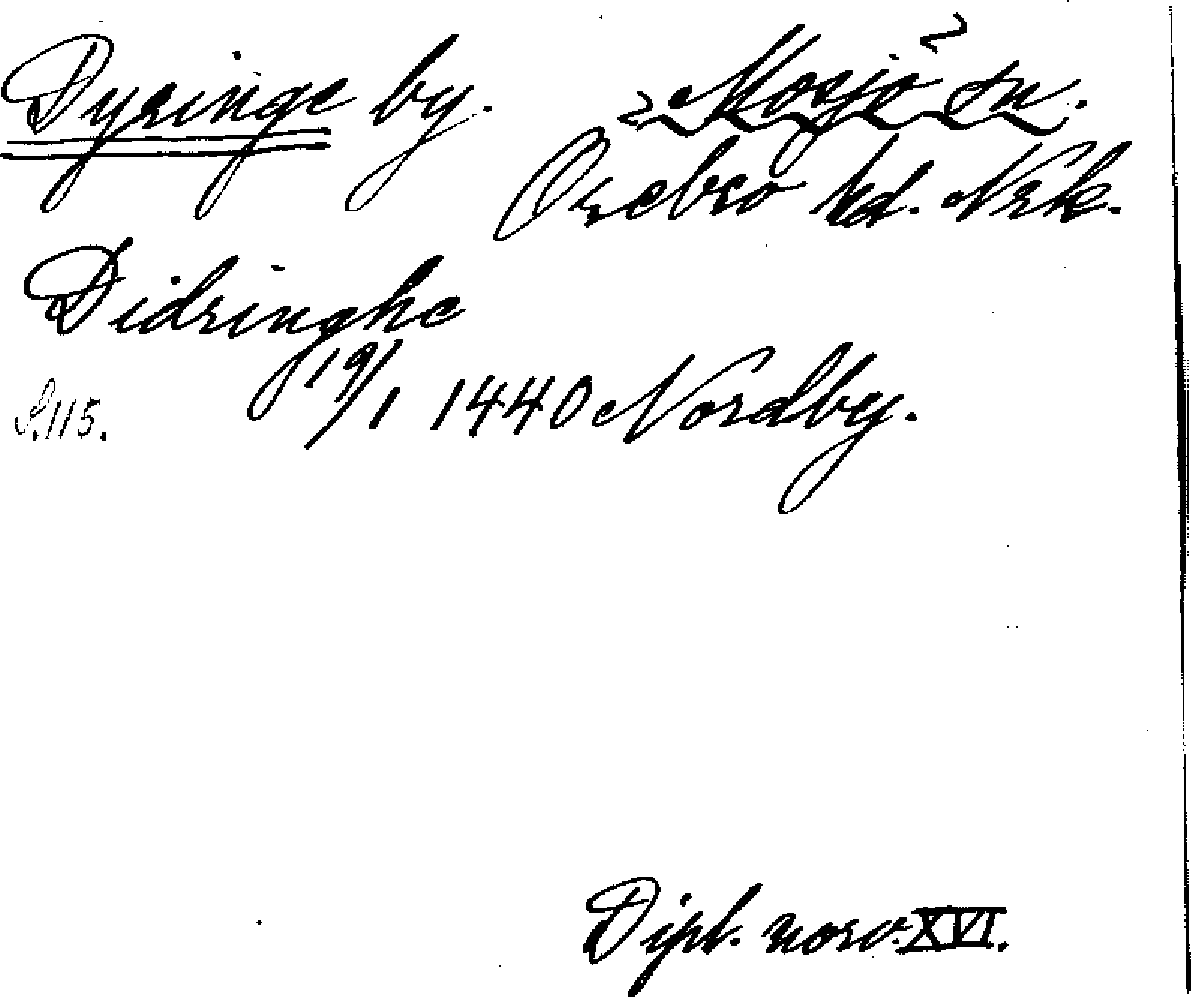 Dyringe by. Mosjö sn.
Örebro hd. Nrk.
Didringhe
S. 115. 19/1 1440 Nordby.
Dipl. norv. XVI.